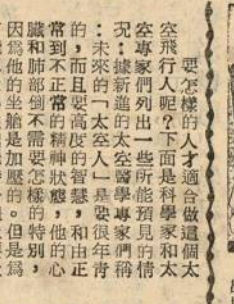 要怎樣的人才適合做這個太
空飛行人呢?下面是科學家和太
空專家們列出一些所能預見的情
況:據新進的太空醫學專家們稱
:未來的「太空人」是要很年靑
的,而且要高度的智慧,和由正
常到不正常的精神狀態,他的心
臟和肺部倒不需要怎樣的特別,
因爲他的坐艙是加壓的。但是爲